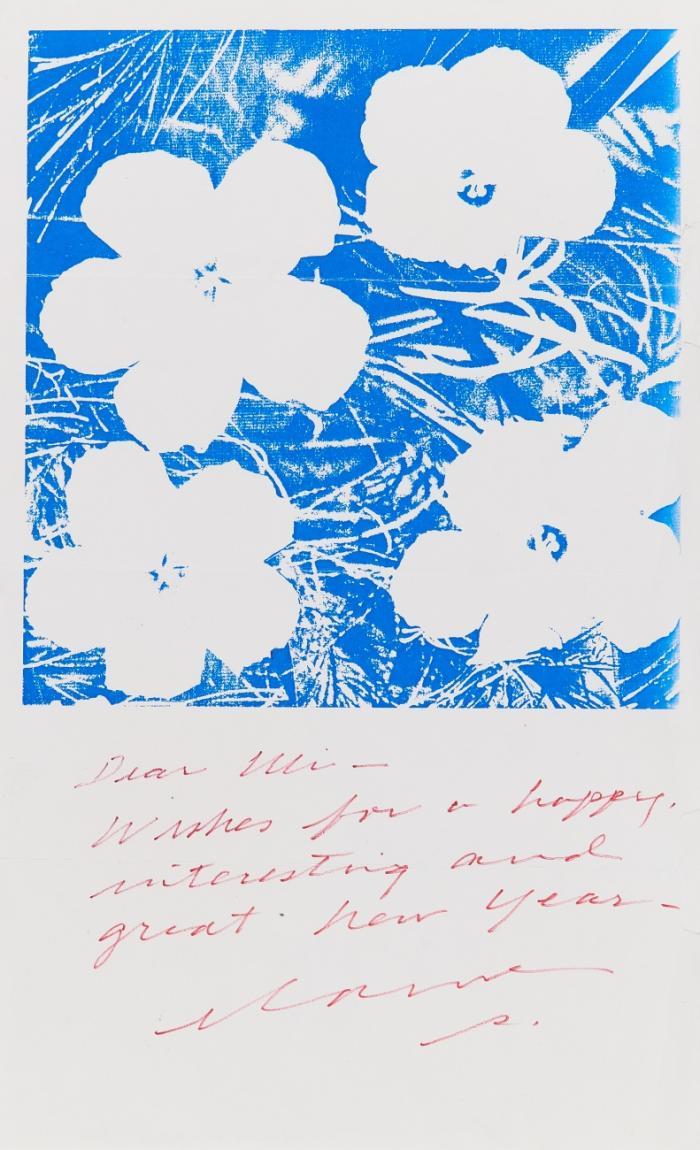 Dear —
Wishes for a happy,
interesting and
great new year -
s.